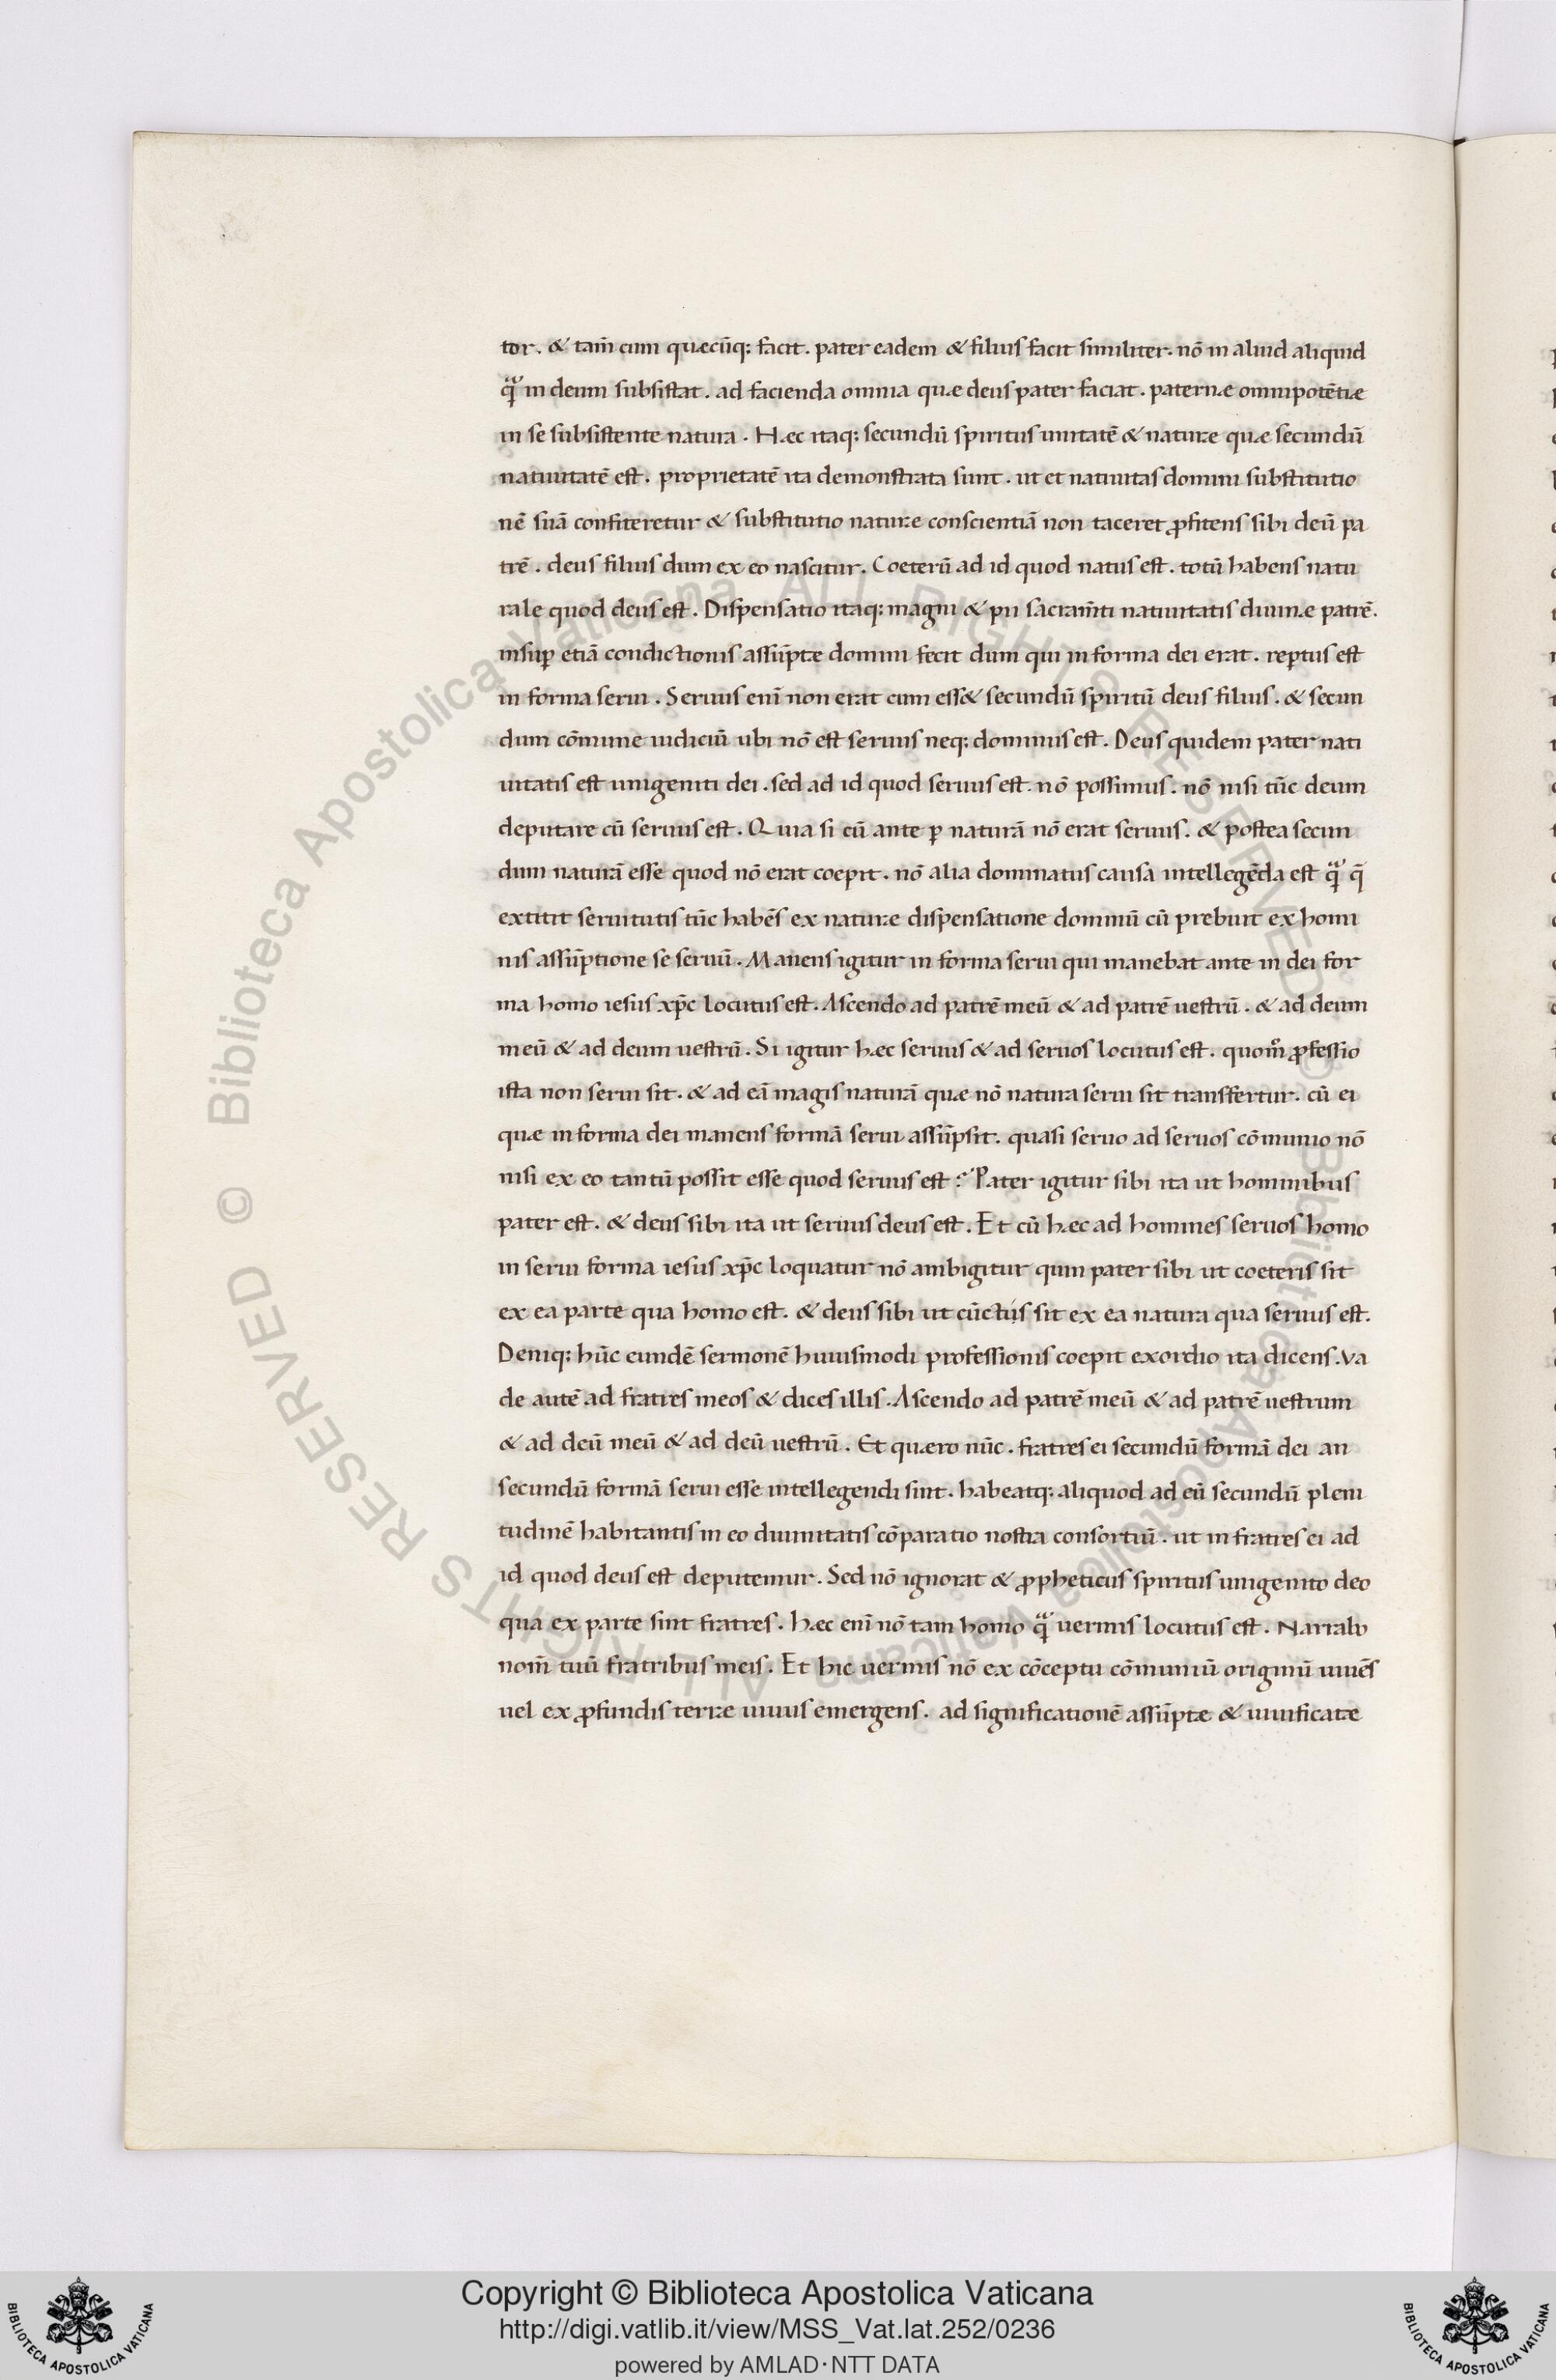 tor. & tam̄ cum quæcūq; facit. pater eadem & filius facit similiter. nō in aliud aliquid
q̃ᷓ in deum subsistat. ad facienda omnia quæ deus pater faciat. paternæ omnipotētiæ
in se subsistente natura. Hæc itaq; secundū spiritus unitatē & naturæ quæ secundū
natiuitatē est. proprietatē ita demonstrata sunt. ut et natiuitas domini substitutio
nē suā confiteretur & substitutio naturæ conscientiā non taceret ꝓfitens sibi deū pa
trē. deus filius dum ex eo nascitur. Coeterū ad id quod natus est. totū habens natu
rale quod deus est. Dispensatio itaq; magni & pii sacram̄ti natiuitatis diuinæ patrē.
insuꝑ etiā condictionis assūptæ domini fecit dum qui in forma dei erat. reꝑtus est
in forma serui. Seruus enī non erat cum ess& secundū spiritū deus filius. & secun
dum cōmune iudiciū ubi nō est seruus neq; dominus est. Deus quidem pater nati
uitatis est unigeniti dei. sed ad id quod seruus est. nō possimus. nō nisi tūc deum
deputare cū seruus est. Quia si cū ante ꝑ naturā nō erat seruus. & postea secun
dum naturā esse quod nō erat coepit. nō alia dominatus causa intellegēda est q̃ᷓ q̄
extitit seruitutis tūc habēs ex naturæ dispensatione dominū cū prebuit ex homi
nis assūptione se seruū. Manens igitur in forma serui qui manebat ante in dei for
ma homo iesus xp̄c locutus est. Ascendo ad patrē meū & ad patrē uestrū. & ad deum
meū & ad deum uestrū. Si igitur hæc seruus & ad seruos locutus est. quom̄ ꝓfessio
ista non serui sit. & ad eā magis naturā quæ nō natura serui sit transfertur. cū ei
quæ in forma dei manens formā serui assūpsit. quasi seruo ad seruos cōmunio nō
nisi ex eo tantū possit esse quod seruus est? Pater igitur sibi ita ut hominibus
pater est. & deus sibi ita ut seruis deus est. Et cū hæc ad homines seruos homo
in serui forma iesus xp̄c loquatur nō ambigitur quin pater sibi ut coeteris sit
ex ea parte qua homo est. & deus sibi ut cūctis sit ex ea natura qua seruus est.
Deniq; hūc eundē sermonē huiusmodi professionis coepit exordio ita dicens. Va
de autē ad fratres meos & dices illis. Ascendo ad patrē meū & ad patrē uestrum
& ad deū meū & ad deū uestrū. Et quæro nūc. fratres ei secundū formā dei an
secundū formā serui esse intellegendi sint. habeatq; aliquod ad eū secundū pleni
tudinē habitantis in eo diuinitatis cōparatio nostra consortiū. ut in fratres ei ad
id quod deus est deputemur. Sed nō ignorat & ꝓpheticus spiritus unigenito deo
qua ex parte sint fratres. hæc enī nō tam homo q̃ᷓ uermis locutus est. Narrabo
nom̄ tuū fratribus meis. Et hic uermis nō ex cōceptu cōmuniū originū uiuēs
uel ex ꝓfundis terræ uiuus emergens. ad significationē assūptæ & uiuificatæ
© Biblioteca Apostolica Vaticana ALL RIGHTS RESERVED © Biblioteca Apostolica Vaticana ALL RIGHTS RESERVED
Copyright © Biblioteca Apostolica Vaticana
http://digi.vatlib.it/view/MSS_Vat.lat.252/0236
powered by AMLAD·NTT DATA
BIBLIOTECA APOSTOLICA VATICANA
BIBLIOTECA APOSTOLICA VATICANA